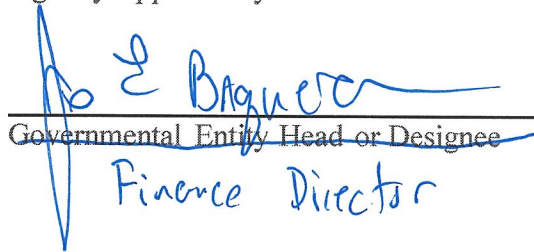 E Baquera
Governmental Entity Head or Designee
Finance Director